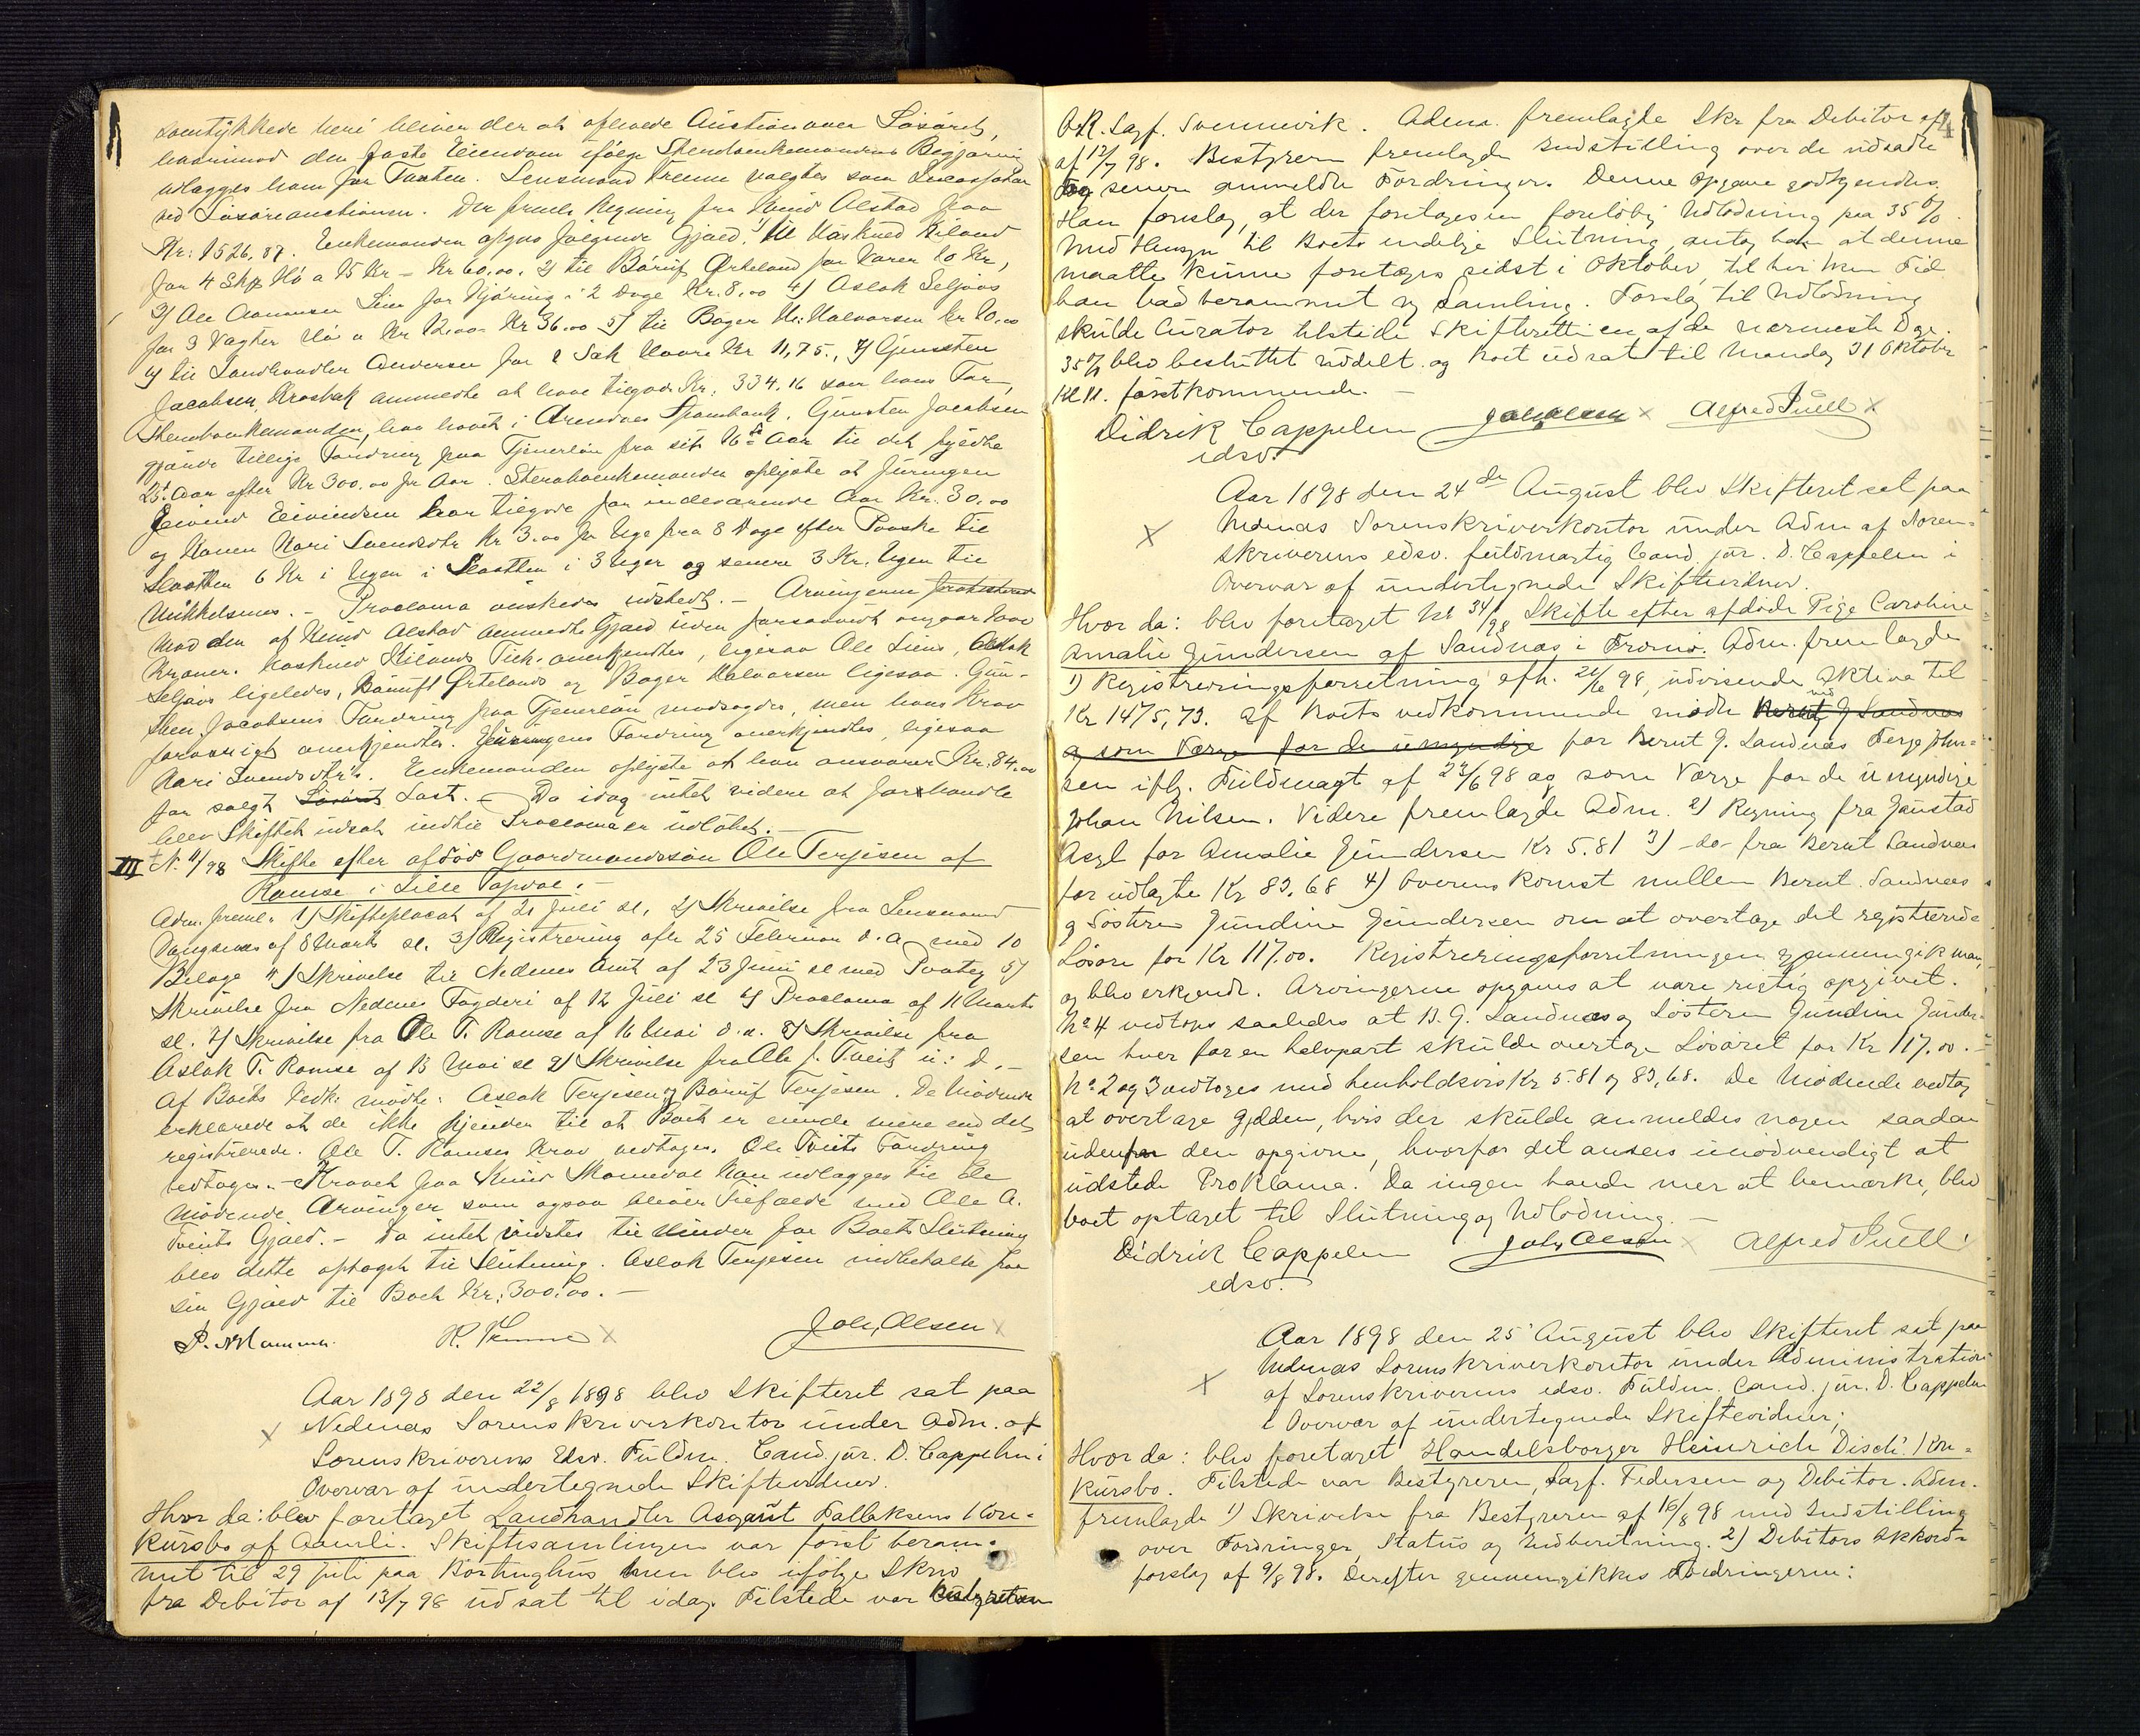 samtykkede heri bliver der at afholde Auction over Løsøret,
hvorimod den faste Eiendom ifølge Stervboenkemandens Begjæring
udlægges ham for Taxten. Lensmand Trenne valgtes som Incassator
ved Løsøreauctionen. Der freml. Regning fra Knud Alstad paa
Kr: 1526,87. Enkemanden opgav følgende Gjæld: til Kiland
for 4 Skp Hø a 15 Kr - Kr 60,00. 2) til Børuf Ørteland for Varer 10 Kr,
3) Ole Lien for Kjøring i 2 Dage Kr. 8,00 4) Aslak Seljaas
for 3 Vægter Hø a Kr 12.00 Kr 36.00 5) til Bager Kr. Halvorsen Kr 10.00
6) til Landhandler Andersen for 1 Sæk Kr 11,75., 7) Gunsten
Jacobsen anmeldte at have tilgode Kr. 334.16 som hans Far,
Stervboenkemanden, har hævet i Arendals Sparebank. Gunsten Jacobsen
gjorde tillige Fordring paa Tjenerløn fra sit 16de Aar til det fyldte
25. Aar efter Kr 300.00 pr Aar. Stervboenkemanden oplyste at
Eivind Eivindsen har tilgode for indeværende Aar Kr. 30.00
og Konen Kari Svendsdtr Kr 3.00 pr Uge fra 8 Dage efter Paaske til
Slaatten 6 Kr i Ugen i Slaatten i 3 Uger og senere 3 Kr. Ugen til
Mikkelsmes. - Proclama ønskedes udstedt. - Arvingerne protesterede
mod den af Knud Alstad anmeldte Gjæld uden forsaavidt angaar
Kroner. Kilands Tilk. anerkjendtes, ligesaa Ole Liens, Aslak
Seljaas ligeledes, Børuft Ørtelands og Bager Halvorsen ligesaa. Gun-
sten Jacobsens Fordring paa Tjenerløn modsagdes, men hans Krav
forøvrigt anerkjendtes. Fordring anerkjendtes, ligesaa
Kari Svendsdtr's. Enkemanden oplyste at han ansvarer Kr. 84.00
for solgt Løsøret Last. - Da idag intet videre at forhandle
blev Skiftet udsat indtil Proclama er udløbet. -
III N. 11/98 Skifte efter afdød Gaardmandssøn Ole Terjesen af
Ramse i Lille Topdal. -
Adm. freml. 1) Skifteplacat af 21 Juli sl, 2) Skrivelse fra Lensmand
af 8 Marts sl. 3) Registrering afh 25 Februar d. a. med 10
Bilage 4) Skrivelse til Nedenes Amt af 23 Juni sl med Paateg 5)
Skrivelse fra Nedenes Fogderi af 12 Juli sl 6) Proclama af 11 Marts
sl. 7) Skrivelse fra Ole T. Ramse af 16 Mai d. a. 8) Skrivelse fra
Aslak T. Ramse af 13 Mai sl 9) Skrivelse fra Ole A. Tveit u: D. -
Af Boets Vedk: mødte: Aslak Terjesen og Børuf Terjesen. De mødende
erklærede at de ikke kjender til at Boet er eiende mere end det
registrerede. Ole T. Ramses Krav vedtages. Ole Tveits Fordring
vedtages. - Kravet paa Knud Manedal kan udlægges til de
mødende Arvinger som ogsaa bliver Tilfælde med Ole A.
Tveits Gjæld. - Da intet vidstes til Hinder for Boets Slutning
blev dette optaget til Slutning. Aslak Terjesen indbetalte paa
sin Gjæld til Boet Kr. 300.00. -
Joh. Olsen
Aar 1898 den 22/8 1898 blev Skifteret sat paa
Nedenæs Sorenskriverkontor under Adm. af
Sorenskriverens Edsv. Fuldm. Cand. jur. D. Cappelen i
Overvær af undertegnede Skiftevidner.
Hvor da: blev foretaget Landhandler Asgaut Fallaksens Kon-
kursbo af Aamli. Skiftesamlingen var først beram-
met til 29 juli paa men blev ifølge Skriv
fra Debitor af 13/7 98 udsat til idag. Tilstede var Bestyreren
O.R. Sagf. Svennevik. Adm. fremlagde Skr fra Debitor af
af 12/7 98. Bestyreren fremlagde Indstilling over de udsatte
og senere anmeldte Fordringer. Denne Opgave godkjendes.
Han foreslog, at der foretages en foreløbig Udlodning paa 35 %.
Med Hensyn til Boets endelige Slutning, antog han at denne
maatte kunne foretages sidst i Oktober, til hvilken Tid
han bad berammet ny Samling. Forslag til Udlodning
skulde Curator tilstede Skifteretten en af de nærmeste Dage.
35 % blev besluttet uddelt og Boet udsat til Mandag 31 Oktober
Kl 11. førstkommende. -
Didrik Cappelen Joh. Olsen Alfred Juell
edsv.
Aar 1898 den 24de August blev Skifteret sat paa
Nedenæs Sorenskriverkontor under Adm af Soren-
skriverens edsv. fuldmægtig Cand. jur. D. Cappelen i
Overvær af undertegnede Skiftevidner.
Hvor da: blev foretaget No 34/98 Skifte efter afdøde Pige Caroline
Amalie Gundersen af Sandnæs i Tromø. Adm. fremlagde
1) Registreringsforretning afh. 21/6 98, udvisende Aktiva til
Kr 1475,73. Af Boets vedkommende mødte ved Bernt G. Sandnæs
og som Værge for de umyndige for Bernt G. Sandnæs Terje John-
sen iflg. Fuldmagt af 22/6 98 og som Værge for de umyndige
Johan Nilsen. Videre fremlagde Adm. 2) Regning fra Gaustad
Asyl for Amalie Gundersen Kr 5.81 3) -do- fra Bernt Sandnæs
for udlagte Kr 83,68 4) Overenskomst mellem Bernt Sandnæs
og Søsteren Gundine Gundersen om at overtage det registrerede
Løsøre for Kr 117.00. Registreringsforretningen gjennemgik man,
og blev erkjendt. Arvingerne opgaves at være rigtig opgivet.
No 4 vedtoges saaledes at B. G. Sandnæs og Søsteren Gundine Gunder-
sen hver for en halvpart skulde overtage Løsøret for Kr 117.00. -
No 2 og 3 vedtoges med henholdsvis Kr 5.81 og 83,68. De Mødende vedtog
at overtage Gjelden, hvis der skulde anmeldes nogen saadan
udenfor den opgivne, hvorfor det ansees unødvendigt at
udstede Proklama. Da ingen havde mer at bemærke, blev
boet optaget til Slutning og Udlodning. -
Didrik Cappelen Joh. Olsen Alfred Juell
edsv.
Aar 1898 den 25' August blev Skifteret sat paa
Nedenæs Sorenskriverkontor under Administration
af Sorenskriverens edsv. Fuldm. Cand. jur. D. Cappelen
i Overvær af undertegnede Skiftevidner;
Hvor da: blev foretaget Handelsborger Heinrich Disch' Kon-
kursbo. Tilstede var Bestyreren, Sagf. Pedersen og Debitor. Adm.
fremlagde 1) Skrivelse fra Bestyreren af 16/8 98 med Indstilling
over Fordringer, Status og Indberetning. 2) Debitors Akkord-
forslag af 9/8 98. Derefter gjennemgikkes Fordringerne: